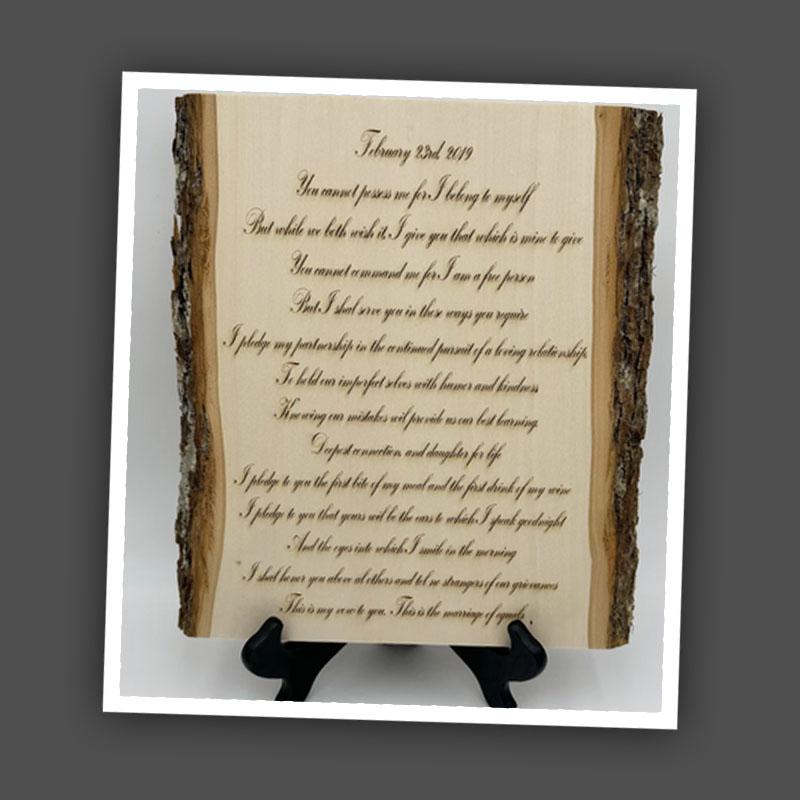 February 23rd, 2019
You cannot possess me for I belong to myself
But while we both wish it, I give you that which is mine to give
You cannot command me for I am a free person
But I shal serve you in those ways you require
I pledge my partnership in the continued pursuit of a loving relationship,
To hold our imperfect selves with humor and kindness
Knowing our mistakes wil provide us our best learning,
Deepest connection, and daughter for life
I pledge to you the first bite of my meal and the first drink of my wine
I pledge to you that yours wil be the ears to which I speak goodnight
And the eyes into which I smile in the morning
I shal honor you above al others and tel no strangers of our grievances
This is my vow to you. This is the marriage of equals.